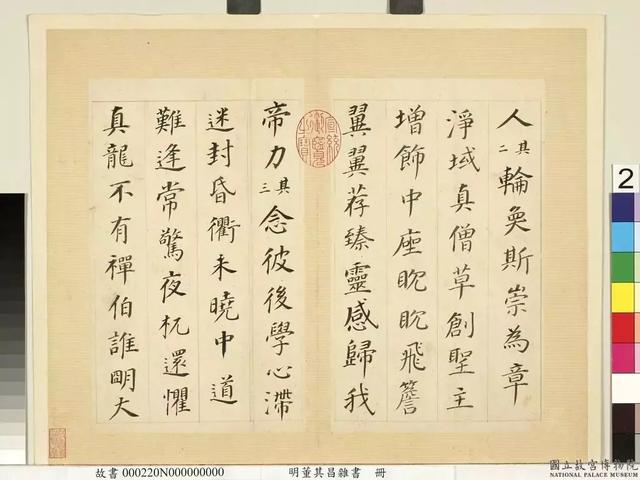 人其二輪奐斯崇為章
淨域真僧草創聖主
增飾中座眈眈飛簷
翼翼荐臻靈感歸我
帝力其三念彼後學心滯
迷封昏衢未曉中道
難逢常驚夜杌還懼
真龍不有禪伯誰眀大
宣統御覽之寶
2
故書 000220N000000000 明董其昌雜書 冊
國立故宮博物院
NATIONAL PALACE MUSEUM